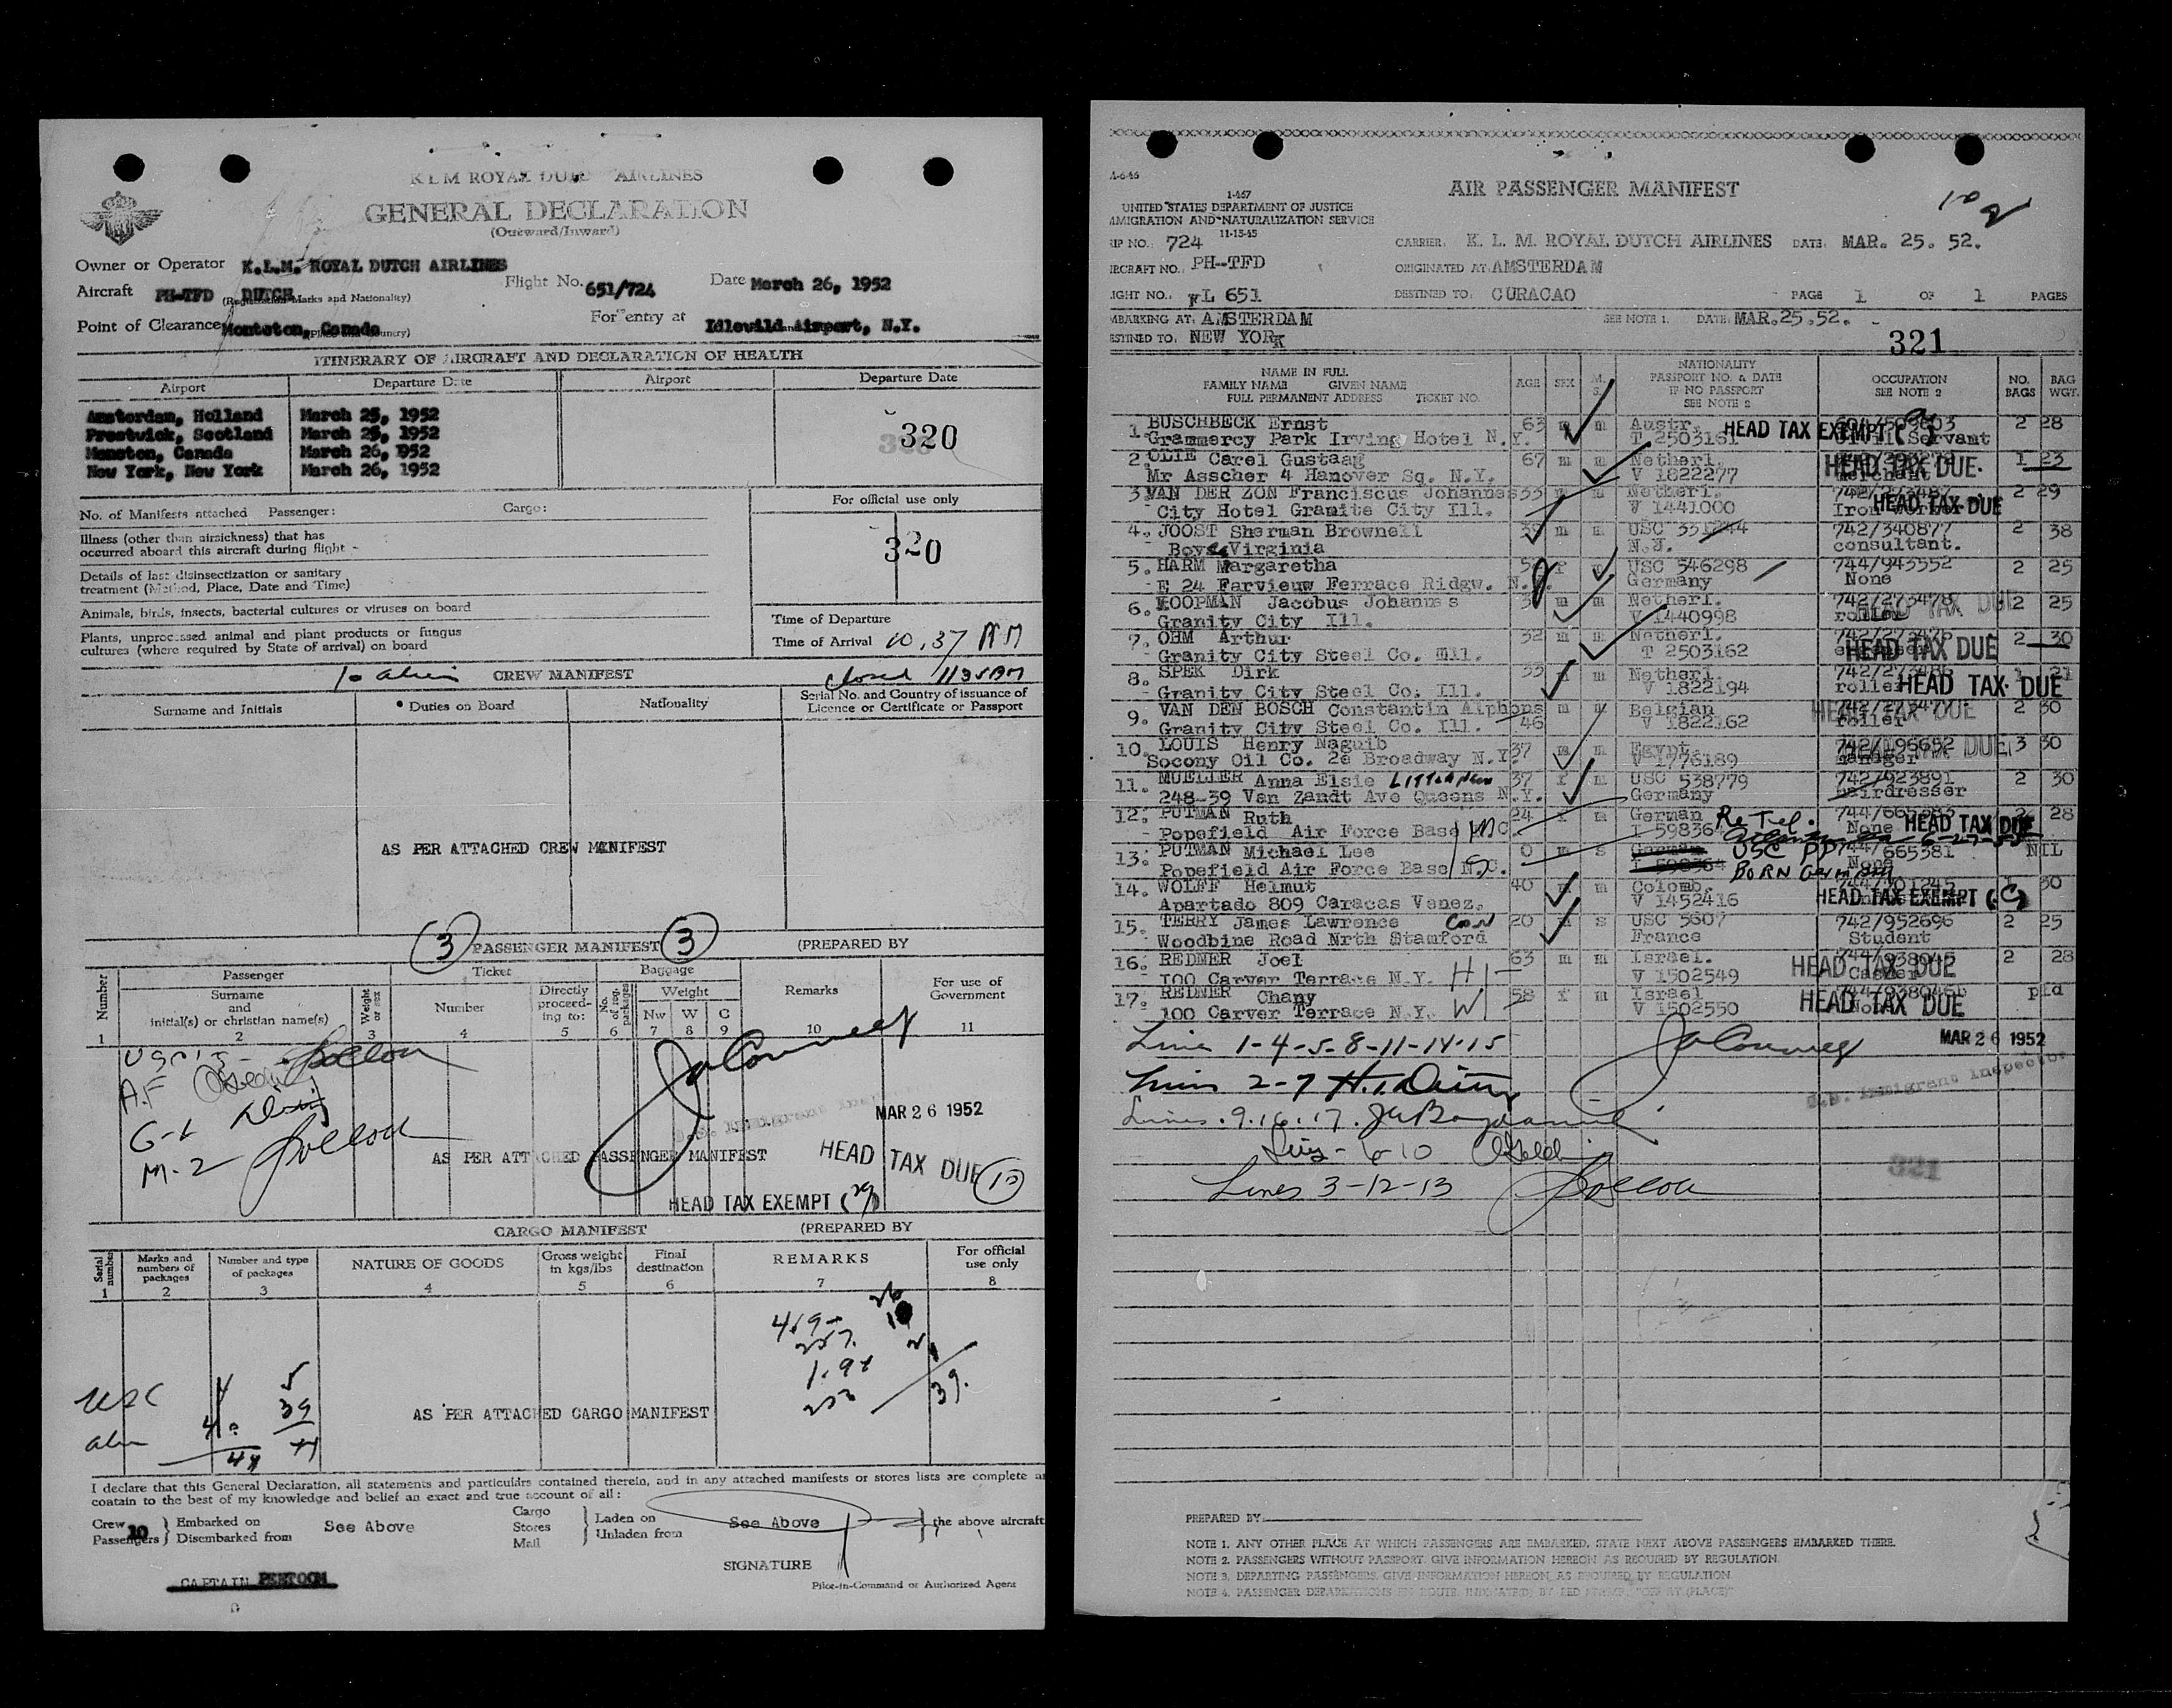 KLM ROYAL DUTCH AIRLINES
GENERAL DECLARATION
(Outward/Inward)
Owner or Operator K.L.M. ROYAL DUTCH AIRLINES
Aircraft PH-TFD DUTCH (Registration Marks and Nationality) Flight No. 651/724 Date March 26, 1952
Point of Clearance Moncton, Canada For entry at Idlewild Airport, N.Y.
ITINERARY OF AIRCRAFT AND DECLARATION OF HEALTH
Airport Departure Date Airport Departure Date
Amsterdam, Holland March 25, 1952
Prestwick, Scotland March 25, 1952
Moncton, Canada March 26, 1952
New York, New York March 26, 1952
320
For official use only
No. of Manifests attached Passenger: Cargo:
Illness (other than airsickness) that has
occurred aboard this aircraft during flight -
320
Details of last disinsectization or sanitary
treatment (Method, Place, Date and Time)
Animals, birds, insects, bacterial cultures or viruses on board
Plants, unprocessed animal and plant products or fungus
cultures (where required by State of arrival) on board
Time of Departure
Time of Arrival 10,37 AM
10 alien CREW MANIFEST closed 1135 AM
Surname and Initials Duties on Board Nationality Serial No. and Country of issuance of
Licence or Certificate or Passport
AS PER ATTACHED CREW MANIFEST
3 PASSENGER MANIFEST 3 (PREPARED BY
Number Passenger Ticket Baggage Remarks For use of
Government
Surname
and
initial(s) or christian name(s) Weight or sex Number Directly
proceed-
ing to: No. of reg. packages Weight
Nw W C
1 2 3 4 5 6 7 8 9 10 11
A.F
G-1
M-2
MAR 26 1952
AS PER ATTACHED PASSENGER MANIFEST
HEAD TAX DUE
HEAD TAX EXEMPT
CARGO MANIFEST (PREPARED BY
Serial number Marks and
numbers of
packages Number and type
of packages NATURE OF GOODS Gross weight
in kgs/lbs Final
destination REMARKS For official
use only
1 2 3 4 5 6 7 8
USC 4 5
alien 40 39
44 44
39.
AS PER ATTACHED CARGO MANIFEST
I declare that this General Declaration, all statements and particulars contained therein, and in any attached manifests or stores lists are complete
contain to the best of my knowledge and belief an exact and true account of all:
Crew 10
Passengers } Embarked on
Disembarked from See Above Cargo
Stores
Mail } Laden on
Unladen from See Above } the above aircraft
SIGNATURE
Pilot-in-Command or Authorized Agent
CAPTAIN PEETOOM
1-467
UNITED STATES DEPARTMENT OF JUSTICE
IMMIGRATION AND NATURALIZATION SERVICE
11-15-45
AIR PASSENGER MANIFEST
IP NO. 724 CARRIER: K. L. M. ROYAL DUTCH AIRLINES DATE: MAR. 25. 52.
IRCRAFT NO. PH-TFD ORIGINATED AT: AMSTERDAM
IGHT NO. KL 651 DESTINED TO: CURACAO PAGE 1 OF 1 PAGES
MBARKING AT: AMSTERDAM SEE NOTE 1. DATE: MAR.25.52.
ESTINED TO: NEW YORK 321
NAME IN FULL
FAMILY NAME GIVEN NAME
FULL PERMANENT ADDRESS TICKET NO. AGE SEX M. S. NATIONALITY
PASSPORT NO. & DATE
IF NO PASSPORT
SEE NOTE 2 OCCUPATION
SEE NOTE 2 NO.
BAGS BAG
WGT.
1. BUSCHBECK Ernst 63 m m Austr. 2 28
Grammercy Park Irving Hotel N.Y. T 2503161 HEAD TAX EXEMPT Civil Servant
2. OLIE Carel Gustaag 67 m m Netherl. 1 23
Mr Asscher 4 Hanover Sq. N.Y. V 1822277 HEAD TAX DUE.
3. VAN DER ZON Franciscus Johannes 55 m m Netherl. 2 29
City Hotel Granite City Ill. V 1441000 HEAD TAX DUE
4. JOOST Sherman Brownell m m USC 2 38
Boyce Virginia N.J. 742/340877 consultant.
5. HARM Margaretha USC 546298 744/943552 2 25
E 24 Farvieuw Ferrace Ridgw. N.J. Germany None
6. KOOPMAN Jacobus Johannes m m Netherl. 742/273478 2 25
Granity City Ill. V 1440998 roller HEAD TAX DUE
7. OHM Arthur 32 m m Netherl. 2 30
Granity City Steel Co. Ill. T 2503162 HEAD TAX DUE
8. SPEK Dirk 33 m m Netherl. 1 21
Granity City Steel Co. Ill. V 1822194 roller HEAD TAX DUE
9. VAN DEN BOSCH Constantin Alphons m m Belgian 2 30
Granity City Steel Co. Ill. 46 V 1822162 roller HEAD TAX DUE
10. LOUIS Henry Naguib 37 m m Egypt. 3 30
Socony Oil Co. 26 Broadway N.Y. V 1776189 HEAD TAX DUE
11. MUELLER Anna Elsie 37 f m USC 538779 742/923891 2 30
248-39 Van Zandt Ave Queens N.Y. Germany Hairdresser
12. PUTMAN Ruth 24 f m German 2 28
Popefield Air Force Base N.C. T 598364 None HEAD TAX DUE
13. PUTMAN Michael Lee 0 m s German USC PP 744/665381 NIL
Popefield Air Force Base N.C. T 598364 BORN Germany None
14. WOLFF Helmut 40 m m Colomb. 30
Apartado 809 Caracas Venez. V 1452416 HEAD TAX EXEMPT
15. TERRY James Lawrence Conn 20 m s USC 5607 742/952696 2 25
Woodbine Road Nrth Stamford France Student
16. REDNER Joel 63 m m Israel. 2 28
100 Carver Terrace N.Y. H V 1502549 HEAD TAX DUE
17. REDNER Chany 58 f m Israel
100 Carver Terrace N.Y. W V 1502550 HEAD TAX DUE
Line 1-4-5-8-11-14-15
MAR 26 1952
Lines 2-7
U.S. Immigrant Inspector
Lines. 9.16.17.
Lines - 6-10
321
Lines 3-12-13
PREPARED BY:
NOTE 1. ANY OTHER PLACE AT WHICH PASSENGERS ARE EMBARKED, STATE NEXT ABOVE PASSENGERS EMBARKED THERE.
NOTE 2. PASSENGERS WITHOUT PASSPORT, GIVE INFORMATION HEREON AS REQUIRED BY REGULATION.
NOTE 3. DEPARTING PASSENGERS, GIVE INFORMATION HEREON, AS REQUIRED BY REGULATION.
NOTE 4. PASSENGER DEPARTATIONS EN ROUTE INDICATED BY RED STAMP "OFF AT (PLACE)"